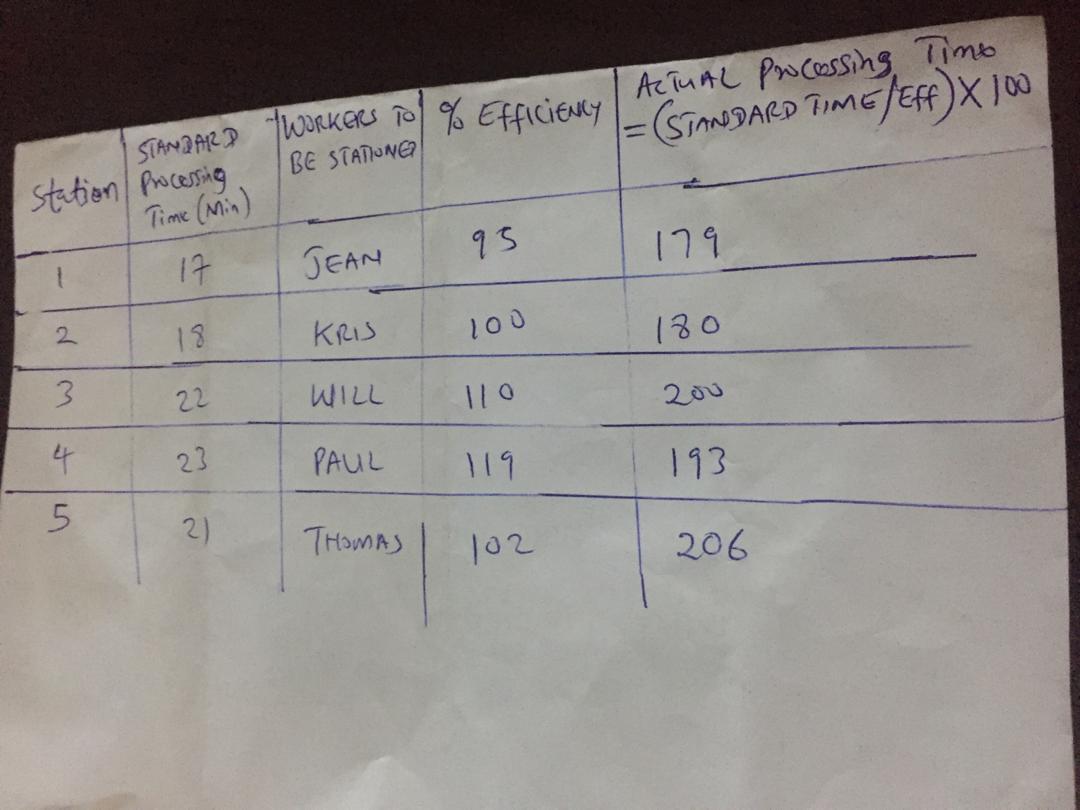 Station | STANDARD Processing Time (Min) | WORKERS TO BE STATIONED | % EFFICIENCY | ACTUAL Processing Time = (STANDARD TIME/EFF) X 100
1 | 17 | JEAN | 95 | 179
2 | 18 | KRIS | 100 | 180
3 | 22 | WILL | 110 | 200
4 | 23 | PAUL | 119 | 193
5 | 21 | THOMAS | 102 | 206